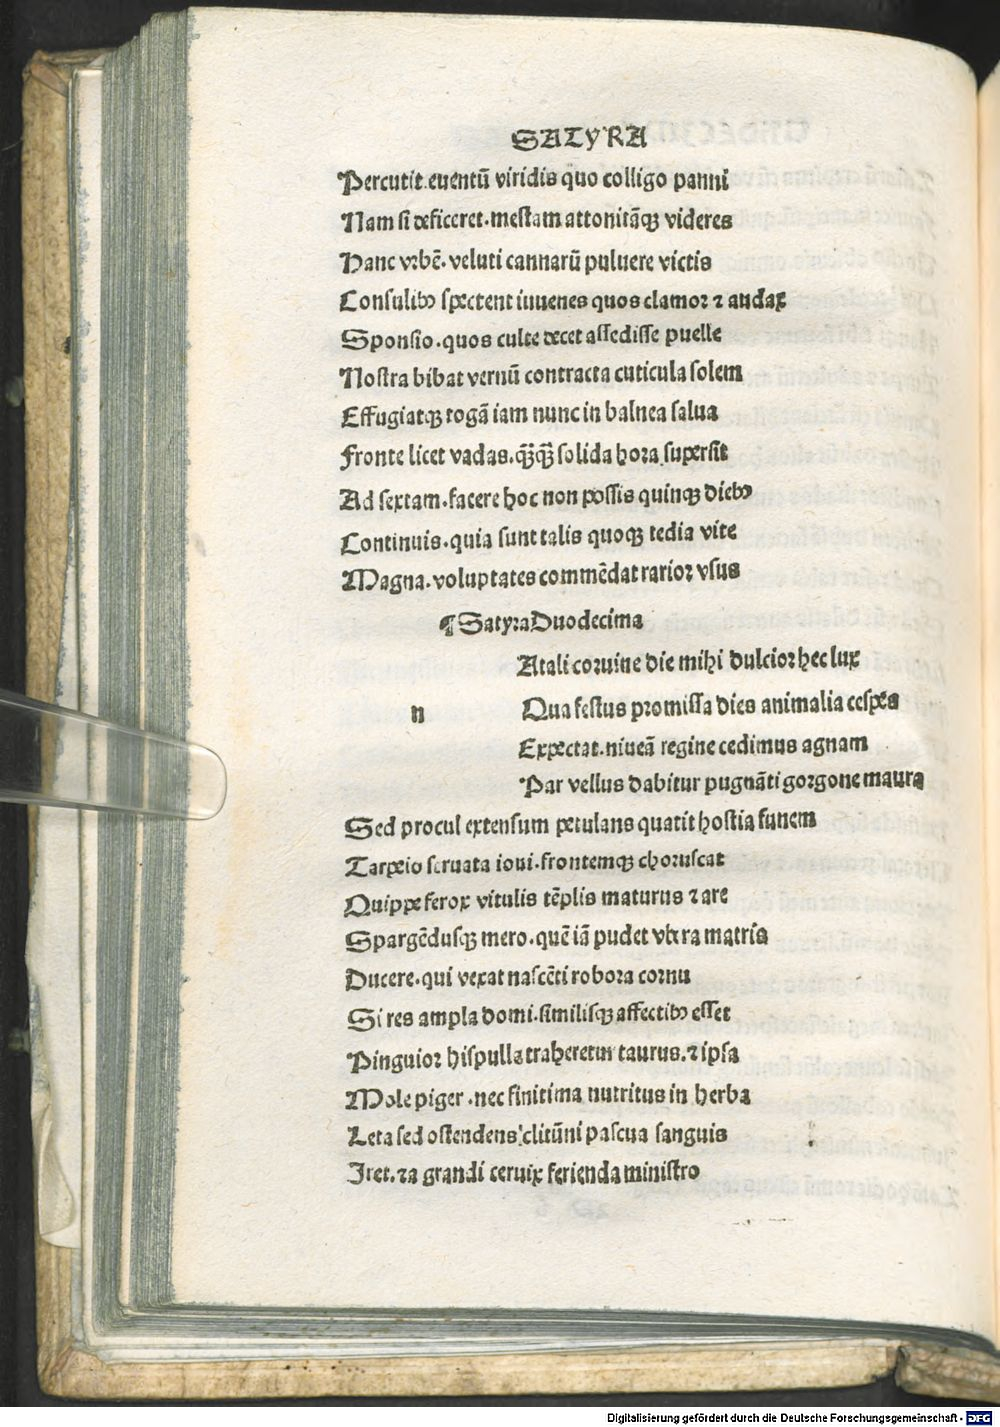 SATYRA
Percutit.euentũ viridis quo colligo panni
Nam si deficeret.mestam attonitãqꝫ videres
Hanc vrbẽ.veluti cannarũ puluere victis
Consulibꝰ spectent iuuenes quos clamor ⁊ audax
Sponsio.quos culte decet assedisse puelle
Nostra bibat vernũ contracta cuticula solem
Effugiatqꝫ togã iam nunc in balnea salua
Fronte licet vadas.qꝫ̃qꝫ̃ solida hora supersit
Ad sextam.facere hoc non possis quinqꝫ diebꝰ
Continuis.quia sunt talis quoqꝫ tedia vite
Magna.voluptates commẽdat rarior vsus
¶Satyra Duodecima
Atali coruine die mihi dulcior hec lux
n Qua festus promissa dies animalia cespes
Expectat.niueã regine cedimus agnam
Par vellus dabitur pugnãti gorgone maura
Sed procul extensum petulans quatit hostia funem
Tarpeio seruata ioui.frontemqꝫ choruscat
Quippe ferox vitulis tẽplis maturus ⁊ are
Spargẽdusqꝫ mero.quẽ iã pudet vbera matris
Ducere.qui vexat nascẽti robora cornu
Si res ampla domi.similisqꝫ affectibꝰ esset
Pinguior hispulla traheretur taurus.⁊ ipsa
Mole piger.nec finitima nutritus in herba
Leta sed ostendens clitũni pascua sanguis
Iret.⁊ a grandi ceruix ferienda ministro
Digitalisierung gefördert durch die Deutsche Forschungsgemeinschaft - DFG